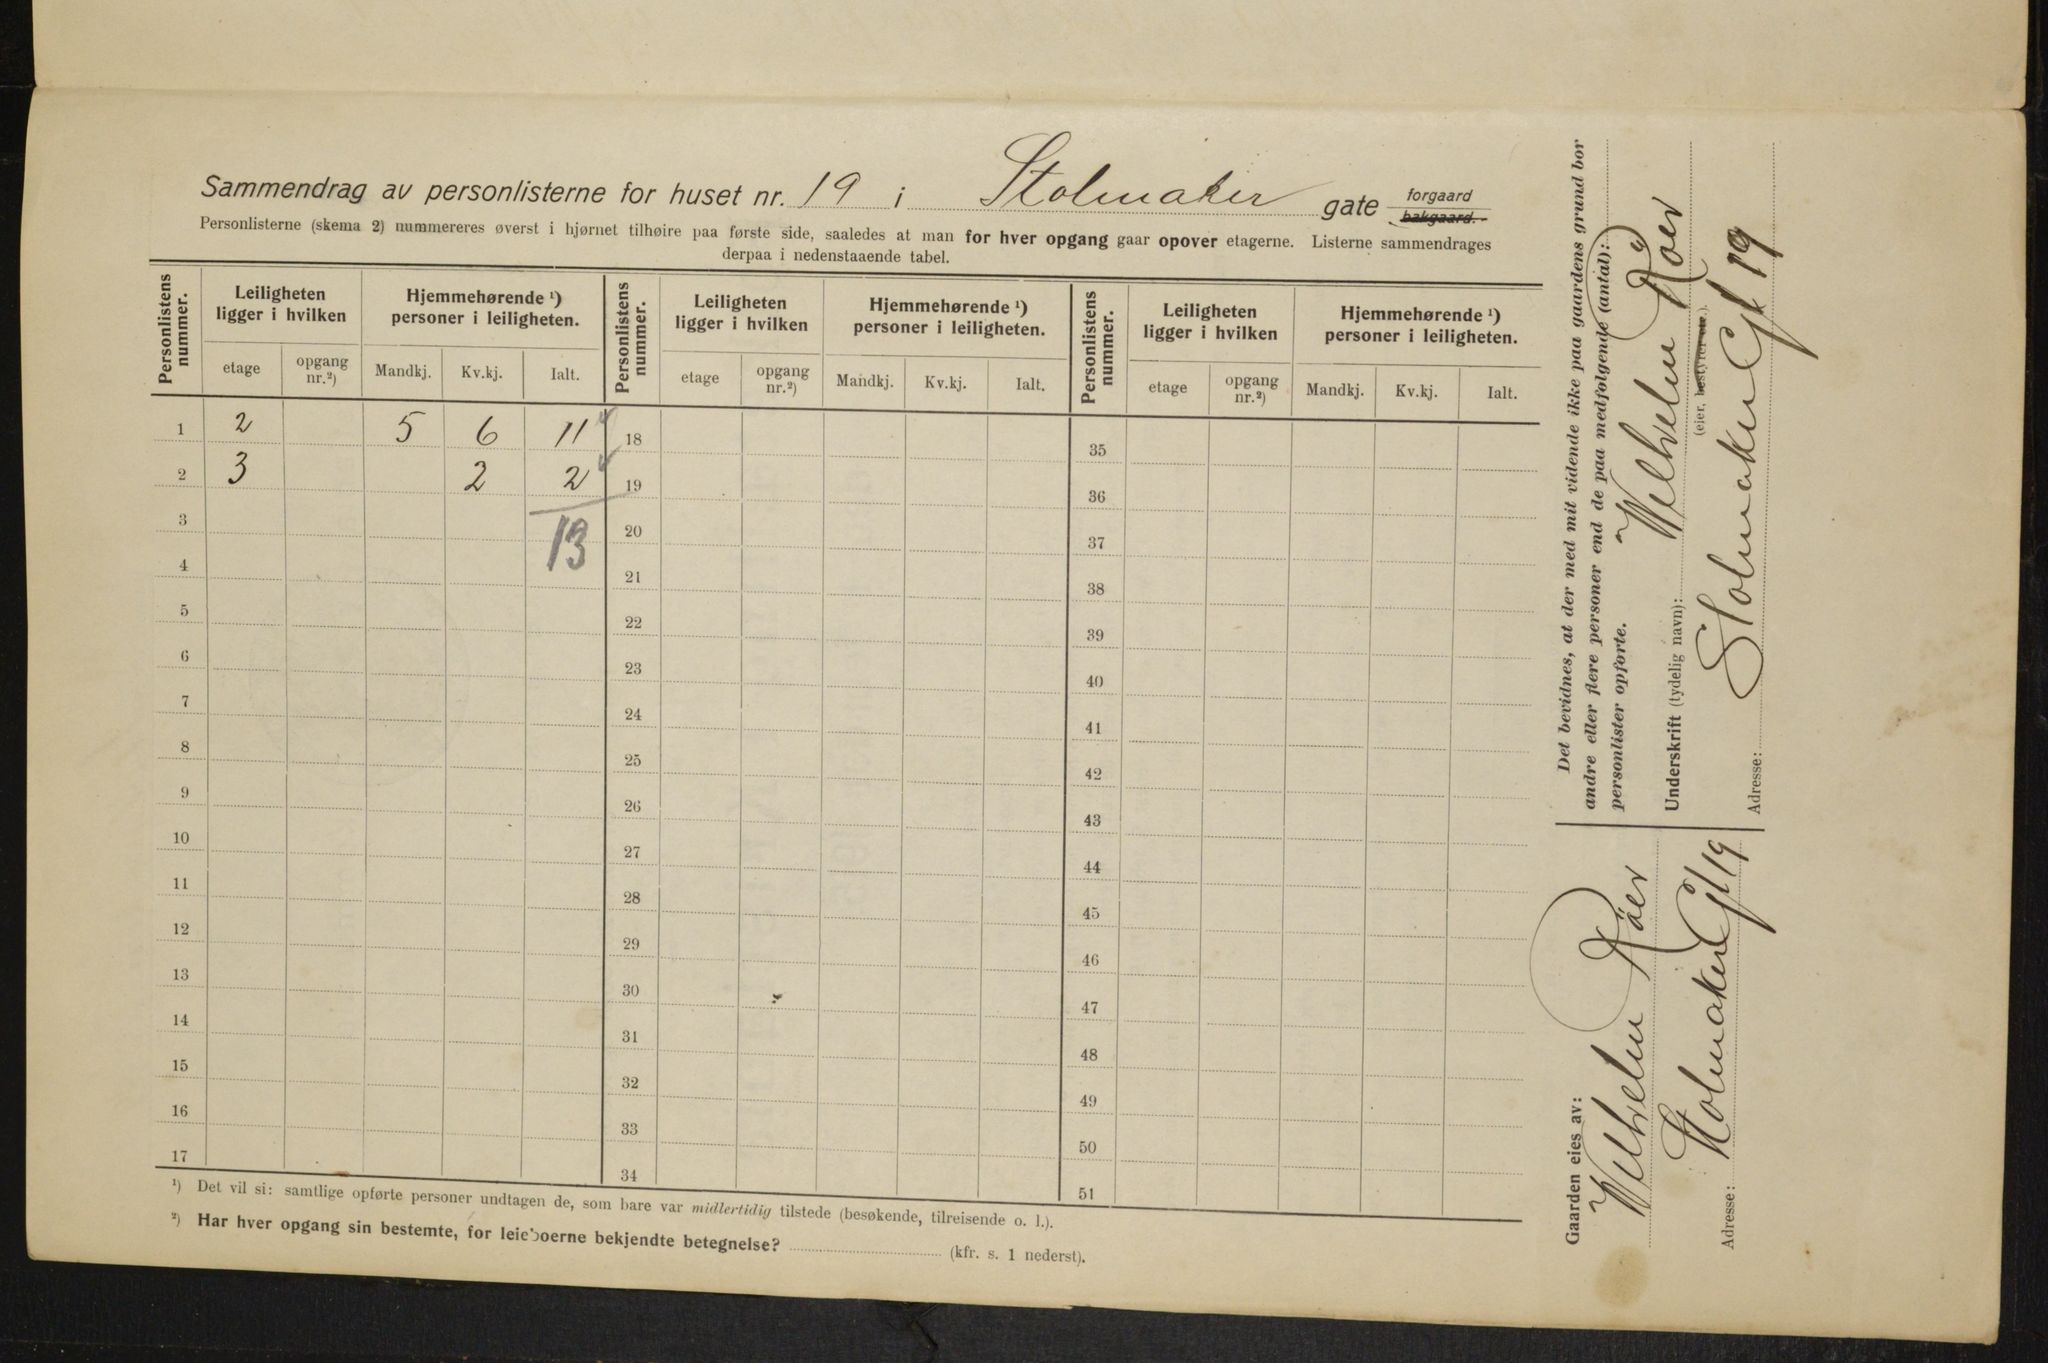 Sammendrag av personlisterne for huset nr. 19 i Stolmaker gate forgaard
bakgaard.
Personlisterne (skema 2) nummereres øverst i hjørnet tilhøire paa første side, saaledes at man for hver opgang gaar opover etagerne. Listerne sammendrages
derpaa i nedenstaaende tabel.
Personlistens nummer. Leiligheten ligger i hvilken Hjemmehørende ¹) personer i leiligheten. Personlistens nummer. Leiligheten ligger i hvilken Hjemmehørende ¹) personer i leiligheten. Personlistens nummer. Leiligheten ligger i hvilken Hjemmehørende ¹) personer i leiligheten.
etage opgang nr.²) Mandkj. Kv.kj. Ialt. etage opgang nr.²) Mandkj. Kv.kj. Ialt. etage opgang nr.²) Mandkj. Kv.kj. Ialt.
1 2 5 6 11 18 35
2 3 2 2 19 36
3 13 20 37
4 21 38
5 22 39
6 23 40
7 24 41
8 25 42
9 26 43
10 27 44
11 28 45
12 29 46
13 30 47
14 31 48
15 32 49
16 33 50
17 34 51
¹) Det vil si: samtlige opførte personer undtagen de, som bare var midlertidig tilstede (besøkende, tilreisende o. l.).
²) Har hver opgang sin bestemte, for leieboerne bekjendte betegnelse? (kfr. s. 1 nederst).
Det bevidnes, at der med mit vidende ikke paa gaardens grund bor
andre eller flere personer end de paa medfølgende (antal):
personlister opførte.
Underskrift (tydelig navn): Wilhelm Röer
(eier, bestyrer etc.).
Adresse: Stolmaker Gt 19
Gaarden eies av:
Wilhelm Röer
Adresse: Stolmaker Gt 19